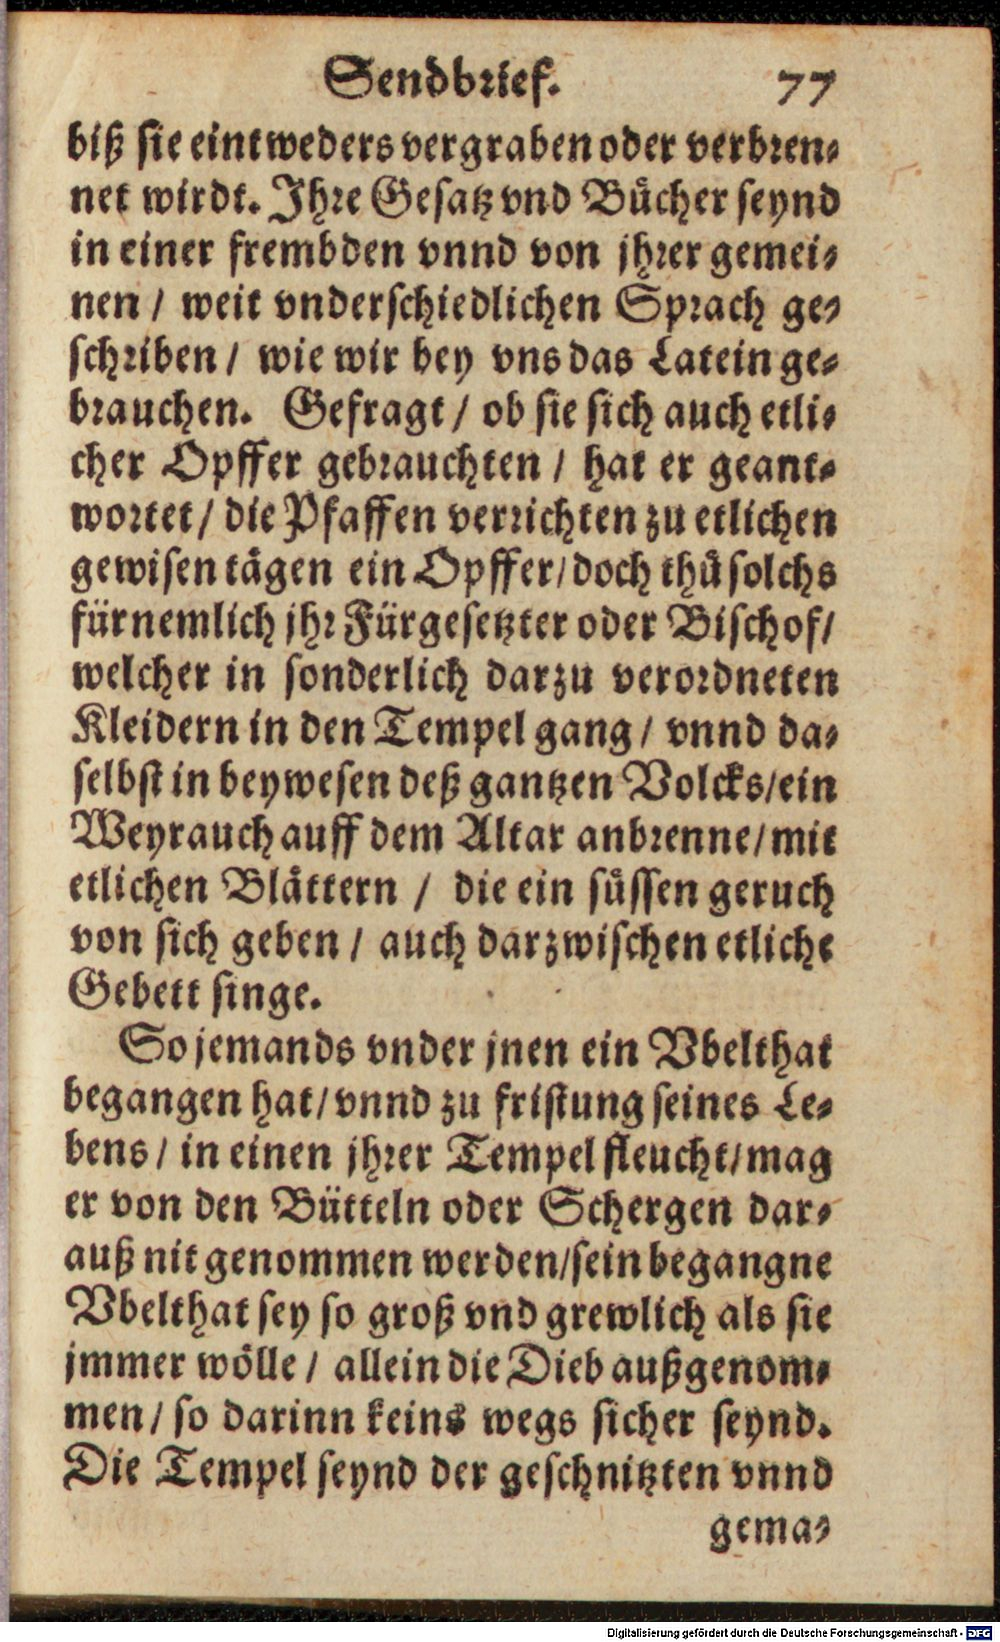 Sendbrief. 77
biß sie eintweders vergraben oder verbren-
net wirdt. Jhre Gesatz vnd Bücher seynd
in einer frembden vnnd von jhrer gemei-
nen / weit vnderschiedlichen Sprach ge-
schriben / wie wir bey vns das Latein ge-
brauchen. Gefragt / ob sie sich auch etli-
cher Opffer gebrauchten / hat er geant-
wortet / die Pfaffen verrichten zu etlichen
gewisen tägen ein Opffer / doch thů solchs
fürnemlich jhr Fürgesetzter oder Bischof /
welcher in sonderlich darzu verordneten
Kleidern in den Tempel gang / vnnd da-
selbst in beywesen deß gantzen Volcks / ein
Weyrauch auff dem Altar anbrenne / mit
etlichen Blättern / die ein süssen geruch
von sich geben / auch darzwischen etliche
Gebett singe.
So jemands vnder jnen ein Vbelthat
begangen hat / vnnd zu fristung seines Le-
bens / in einen jhrer Tempel fleucht / mag
er von den Bütteln oder Schergen dar-
auß nit genommen werden / sein begangne
Vbelthat sey so groß vnd grewlich als sie
jmmer wölle / allein die Dieb außgenom-
men / so darinn keins wegs sicher seynd.
Die Tempel seynd der geschnitzten vnnd
gema-
Digitalisierung gefördert durch die Deutsche Forschungsgemeinschaft - DFG